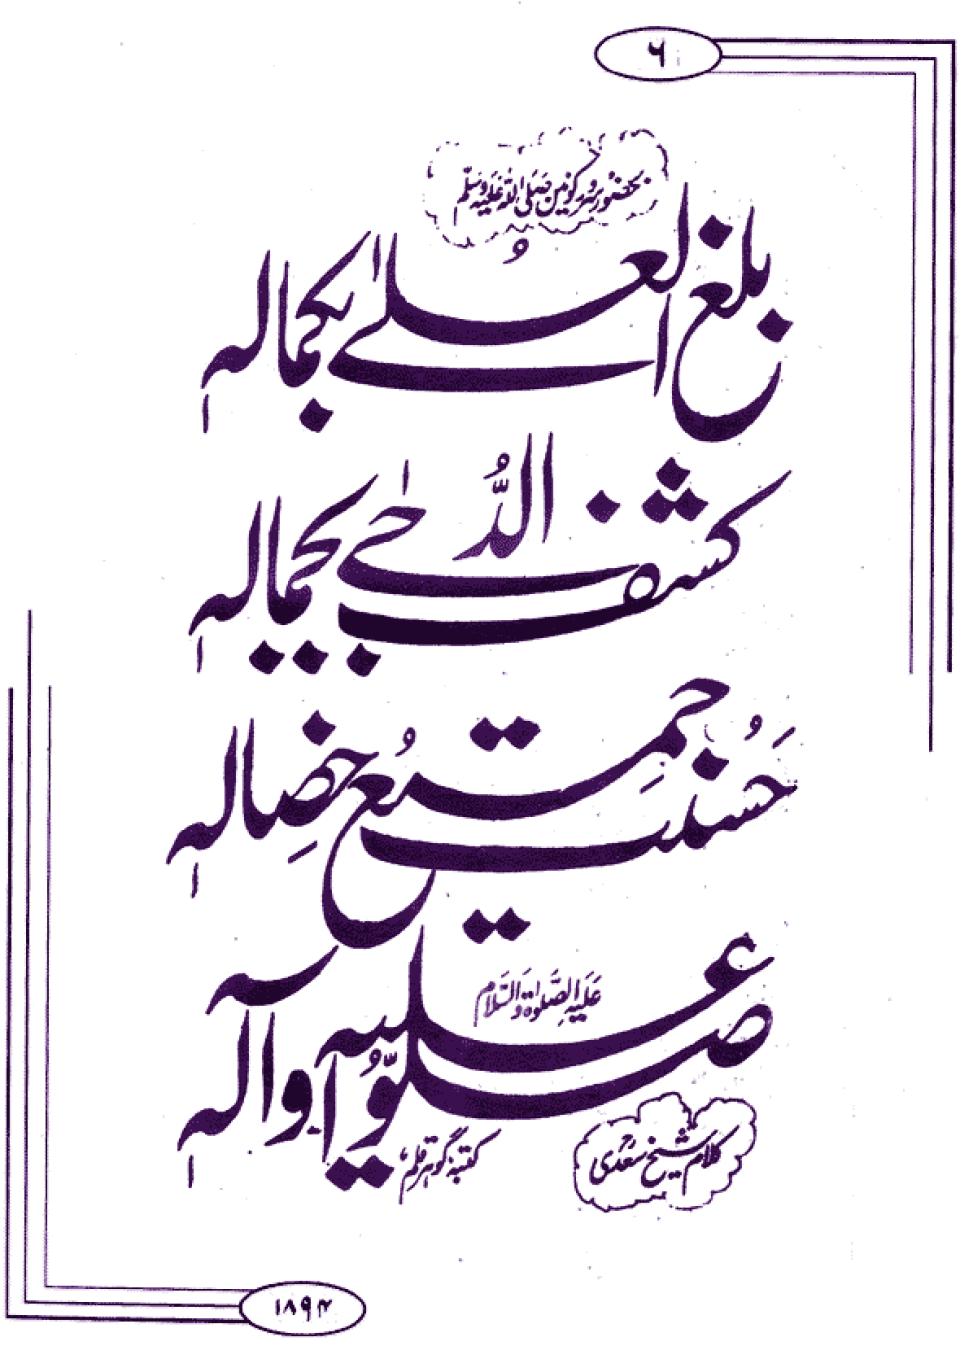 ۶
بحضور سرور کونین صلی اللہ علیہ وسلم
بلغ العلےٰ بکمالہٖ
کشف الدُّجےٰ بجمالہٖ
حَسُنت جمیعُ خِصالہٖ
صلّوا علیہ وآلہٖ
عَلَیہِ الصَّلوٰۃ وَالسَّلام
کلام شیخ سعدی
کتبہٗ گوہر قلم
۱۸۹۴